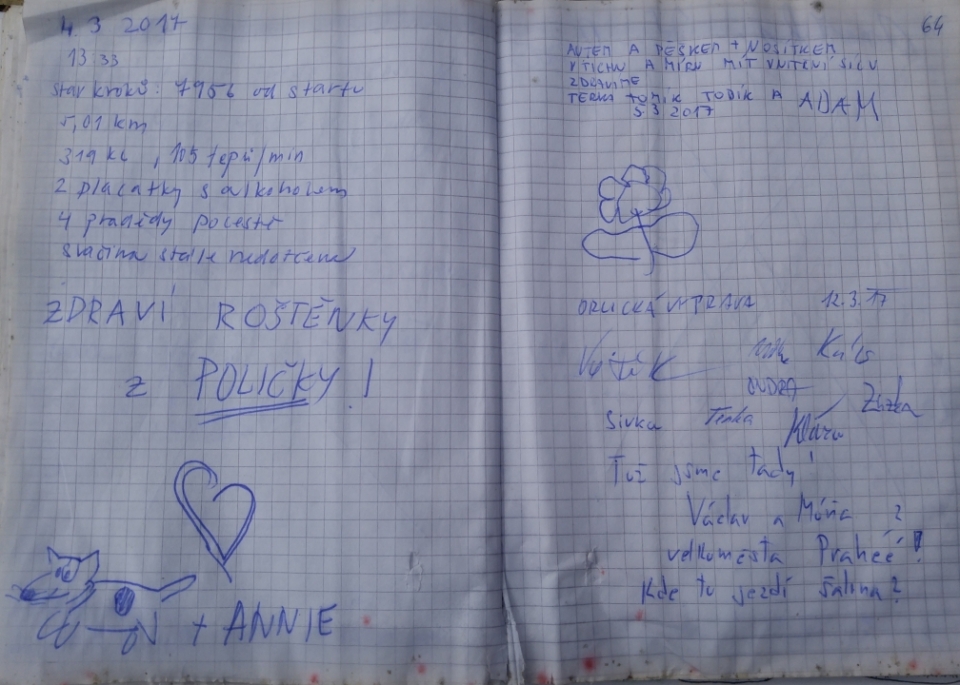 4 3 2017
13 33
stav kroků: 7956 od startu
5,01 km
319 kc, 105 tepů/min
2 placatky s alkoholem
4 pradědy po cestě
svačina stále nedotčena
ZDRAVÍ ROŠTĚNKY
z POLIČKY!
+ ANNIE
64
AUTEM A PĚŠKEM + NOSÍTKEM
V TICHU A MÍRU MÍT VNITŘNÍ SÍLU
ZDRAVÍME
TERKA TOMÍK TODÍK A ADAM
5 3 2017
ORLICKÁ VÝPRAVA 12.3.17
Vojtík
ONDRA Zuzka
Sivka Terka Klára
Tož jsme tady!
Václav a Móňa z
velkoměsta Prahéé!
Kde tu jezdí šalina?